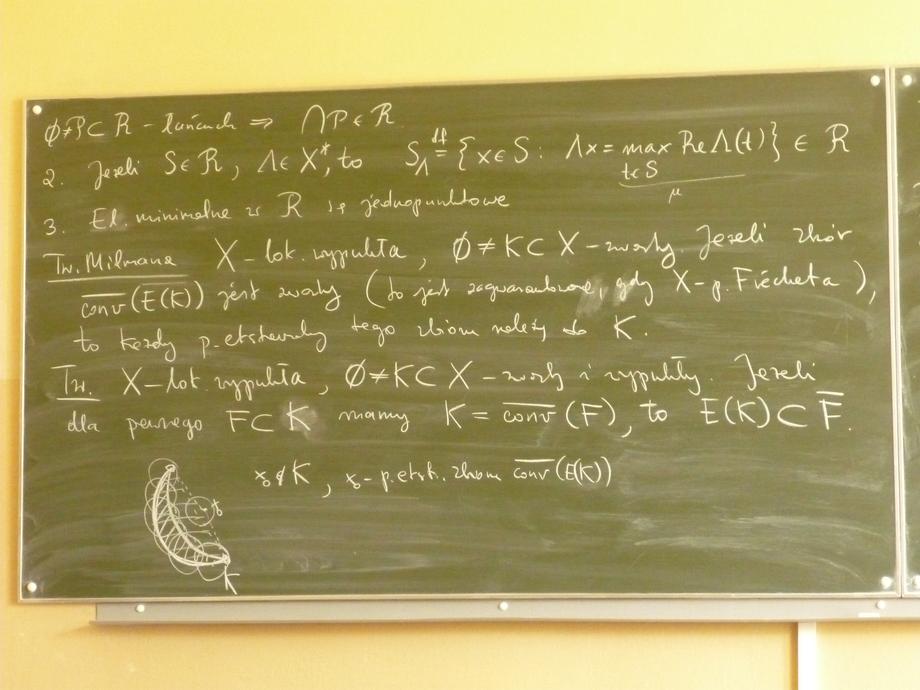 ∅≠P⊂R – łańcuch ⇒ ⋂P∈R
2. Jeżeli S∈R, Λ∈X*, to S_Λ ≝ {x∈S: Λx = max_{t∈S} Re Λ(t)} ∈ R
μ
3. El. minimalne w R są jednopunktowe
Tw. Milmana X – lok. wypukła, ∅≠K⊂X – zwarty. Jeżeli zbiór
conv̅(E(K)) jest zwarty (to jest zagwarantowane, gdy X – p. Frécheta),
to każdy p. ekstremalny tego zbioru należy do K.
Tw. X – lok. wypukła, ∅≠K⊂X – zwarty i wypukły. Jeżeli
dla pewnego F⊂K mamy K = conv̅(F), to E(K)⊂F̅.
x₀∉K, x₀ – p. ekstr. zbioru conv̅(E(K))
x₀
K